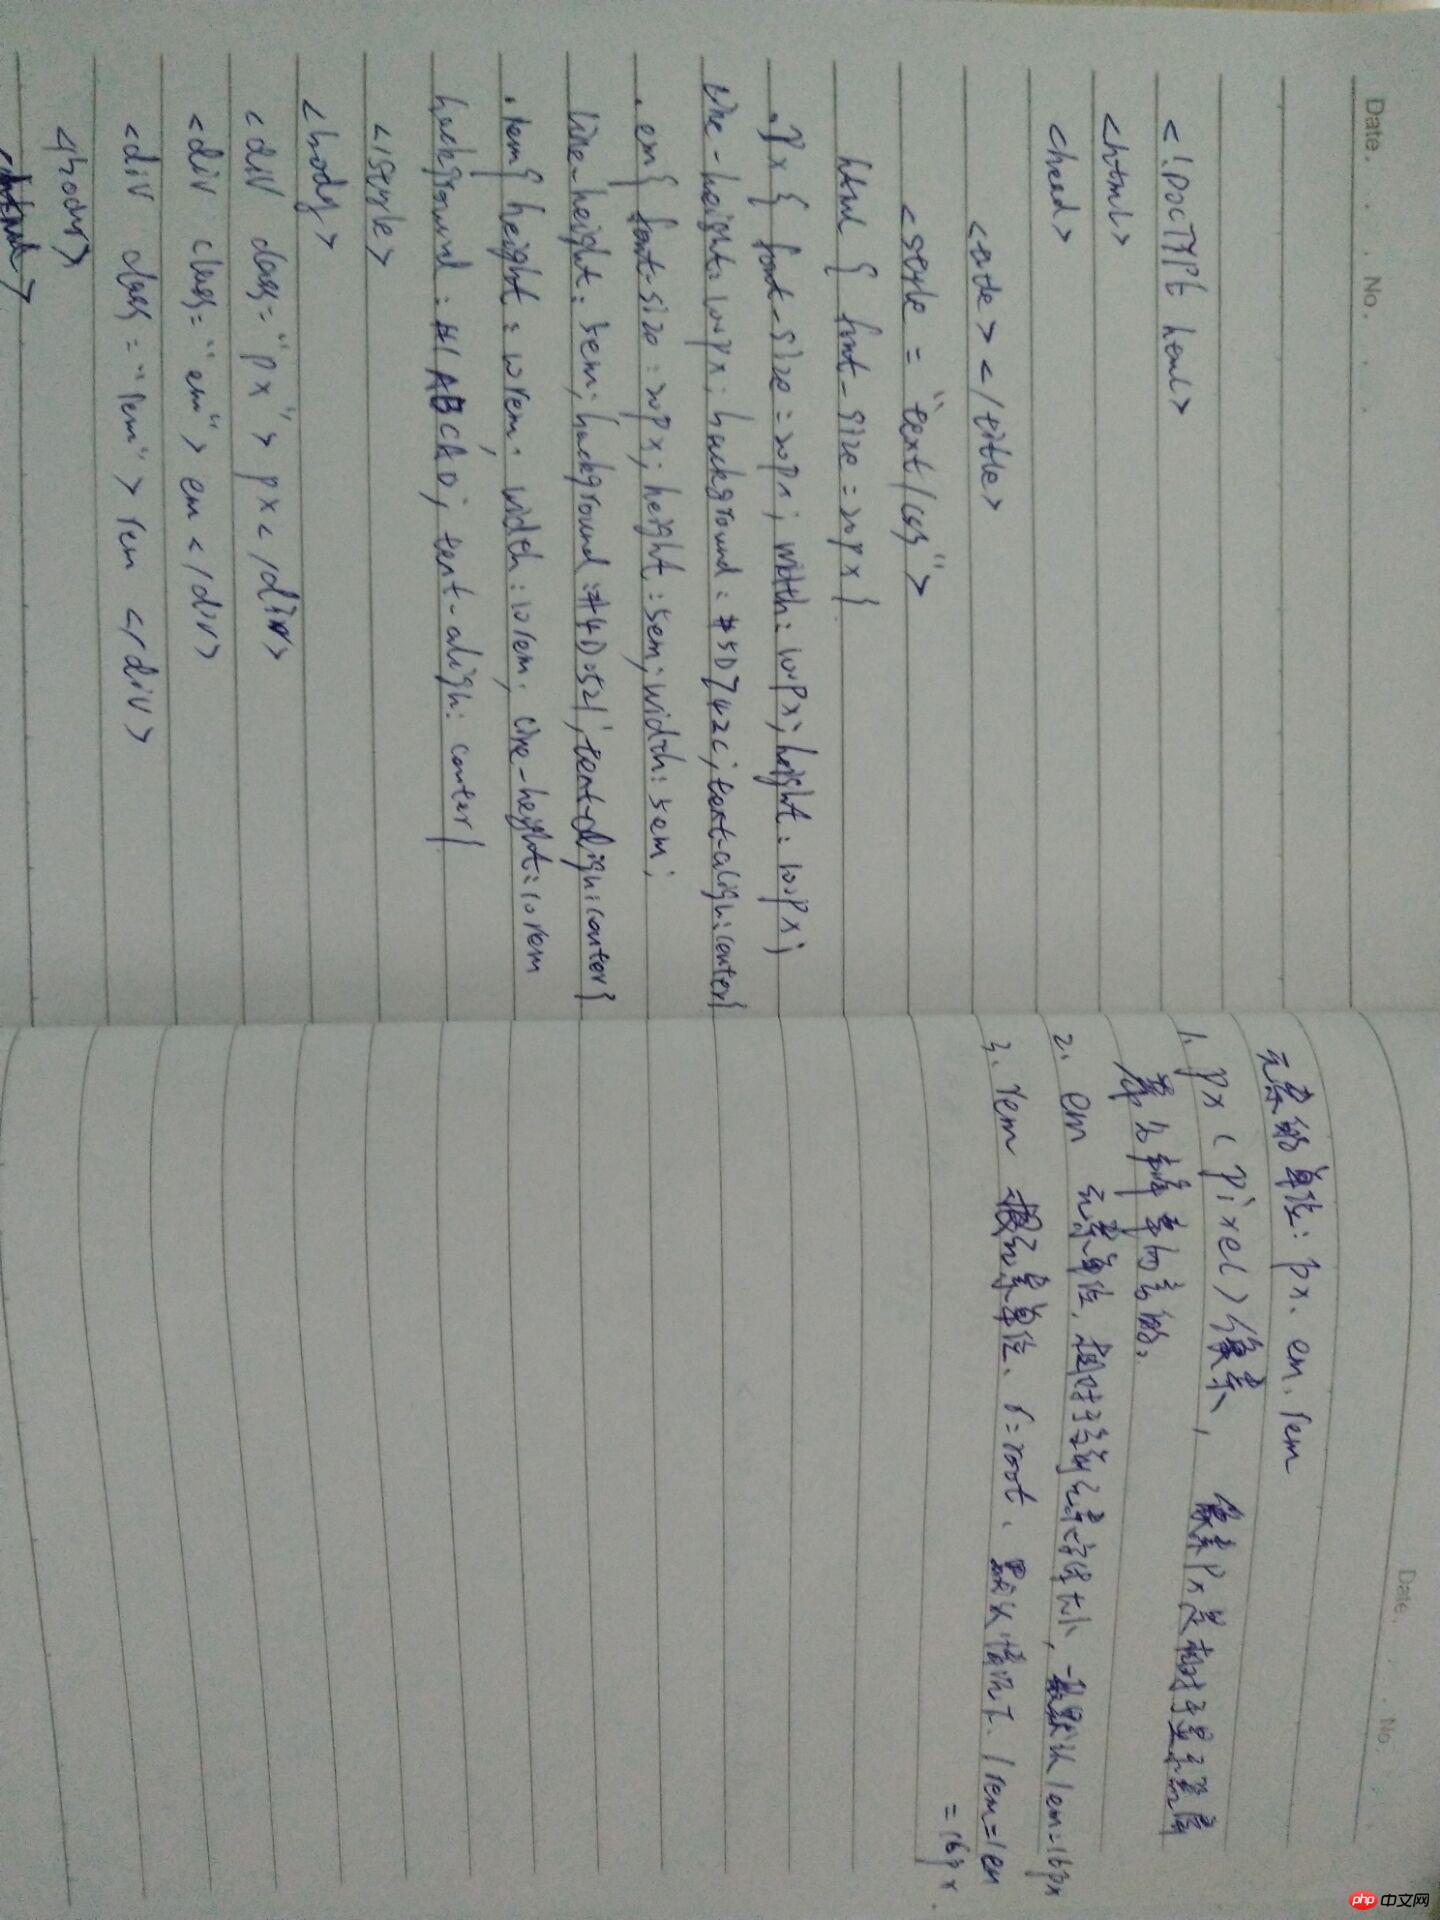 Date. No.
<!DOCTYPE html>
<html>
<head>
<title></title>
<style = "text/css">
html { font-size = 20px }
.px { font-size = 20px; width: 100px; height: 100px;
line-height: 100px; background: #5D742C; text-align: center}
.em{ font-size: 20px; height: 5em; width: 5em;
line-height: 5em; background: #4D0521; text-align: center}
.rem{ height: 10rem; width: 10rem; line-height: 10rem
background: text-align: center}
</style>
<body>
<div class="px">px</div>
<div class="em">em</div>
<div class="rem">rem</div>
</body>
Date. No.
元素的单位: px. em. rem
1. px (pixel) 像素, 像素px是相对于显示器屏
幕分辨率而言的。
2. em 元素单位, 相对于当前元素字体大小, 一般默认1em=16px
3. rem 根元素单位. r=root. 默认情况下. 1rem=1em
=16px
php 中文网